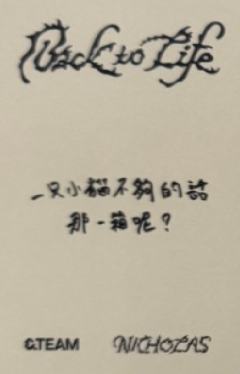 Back to Life
一只小貓不夠的話
那一箱呢？
&TEAM NICHOLAS